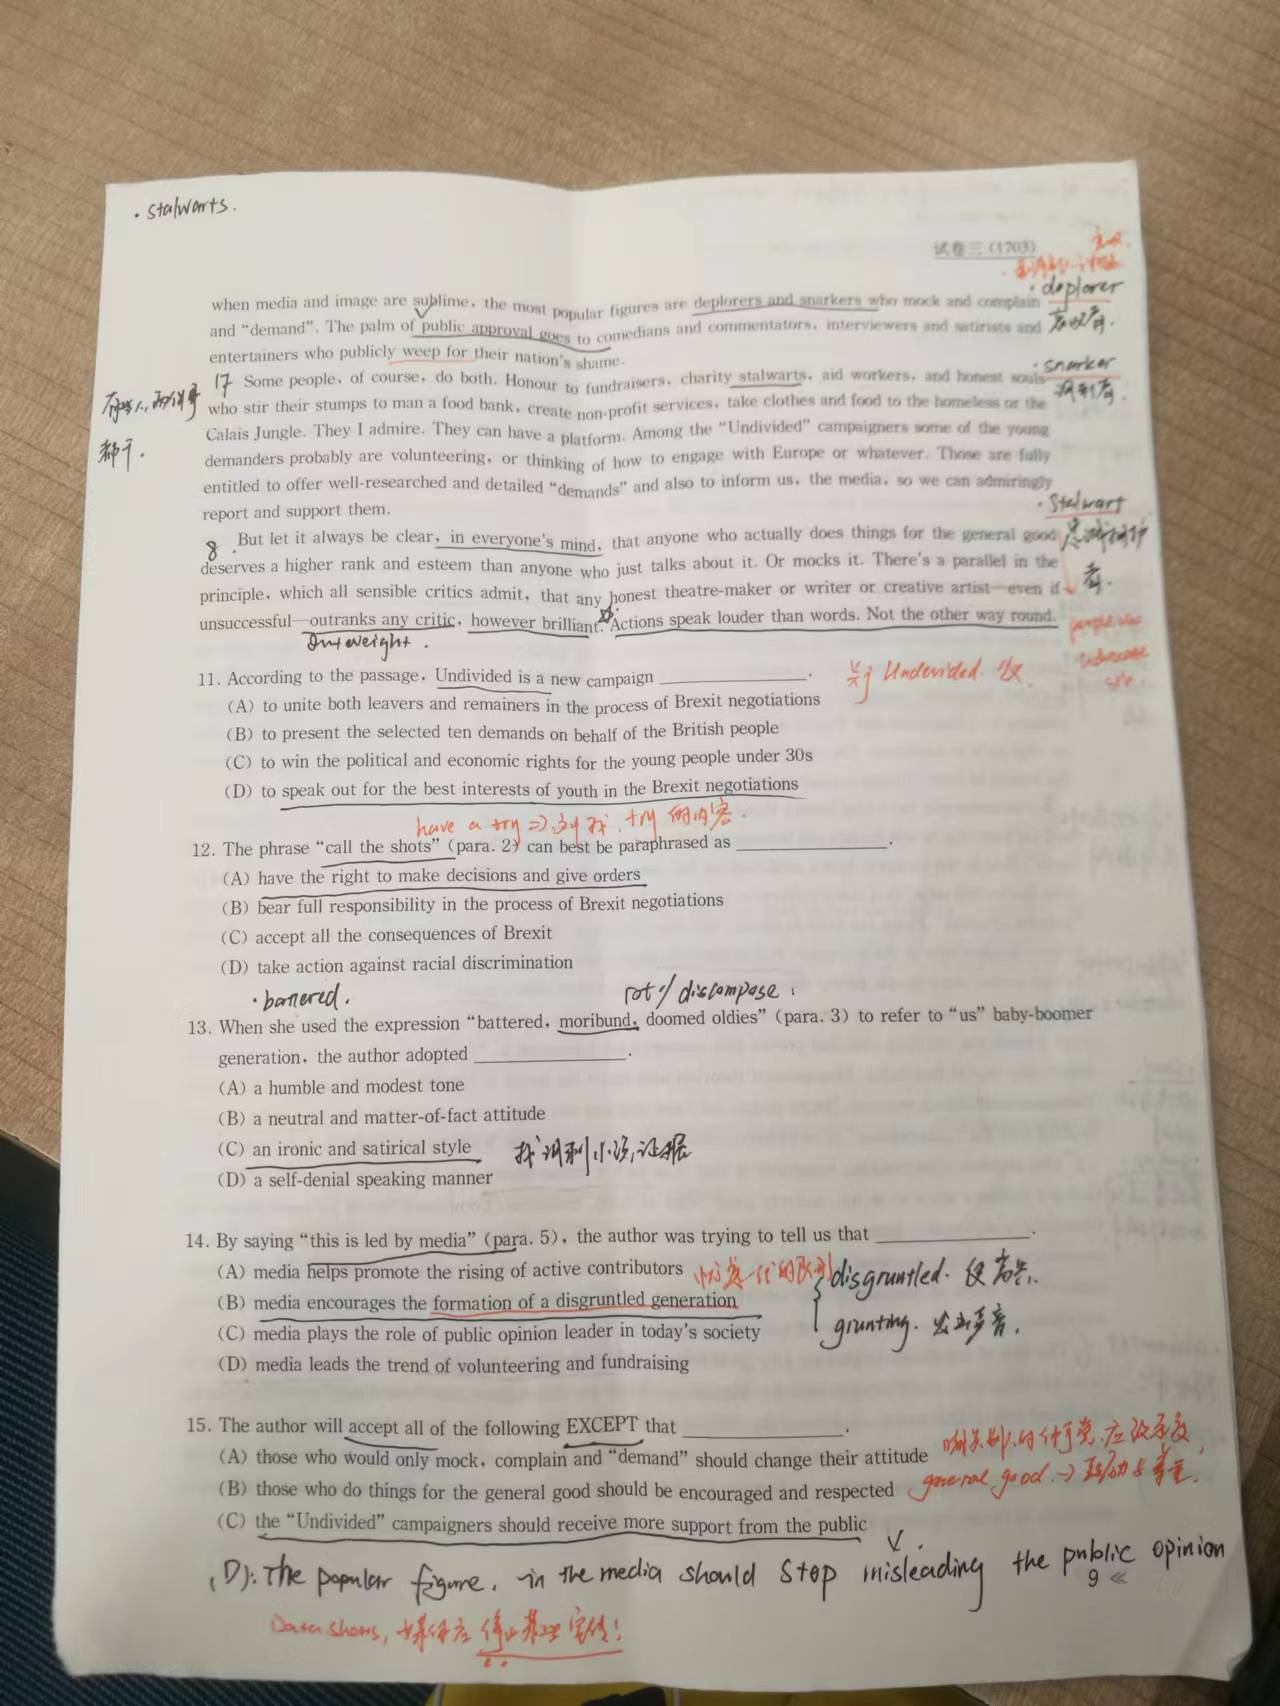 · stalwarts.
试卷三(1703)
· deplorer
when media and image are sublime, the most popular figures are deplorers and snarkers who mock and complain
and “demand”. The palm of public approval goes to comedians and commentators, interviewers and satirists and
entertainers who publicly weep for their nation's shame.
· snarker
讽刺者.
17 Some people, of course, do both. Honour to fundraisers, charity stalwarts, aid workers, and honest souls
who stir their stumps to man a food bank, create non-profit services, take clothes and food to the homeless or the
都干.
Calais Jungle. They I admire. They can have a platform. Among the “Undivided” campaigners some of the young
demanders probably are volunteering, or thinking of how to engage with Europe or whatever. Those are fully
entitled to offer well-researched and detailed “demands” and also to inform us, the media, so we can admiringly
report and support them.
· Stalwart
8 But let it always be clear, in everyone's mind, that anyone who actually does things for the general good
deserves a higher rank and esteem than anyone who just talks about it. Or mocks it. There's a parallel in the
者.
principle, which all sensible critics admit, that any honest theatre-maker or writer or creative artist—even if
unsuccessful—outranks any critic, however brilliant. Actions speak louder than words. Not the other way round.
Outweight.
11. According to the passage, Undivided is a new campaign ______.
(A) to unite both leavers and remainers in the process of Brexit negotiations
(B) to present the selected ten demands on behalf of the British people
(C) to win the political and economic rights for the young people under 30s
(D) to speak out for the best interests of youth in the Brexit negotiations
have a try ⇒ try 的内容.
12. The phrase “call the shots” (para. 2) can best be paraphrased as ______.
(A) have the right to make decisions and give orders
(B) bear full responsibility in the process of Brexit negotiations
(C) accept all the consequences of Brexit
(D) take action against racial discrimination
· battered. rot / discompose
13. When she used the expression “battered, moribund, doomed oldies” (para. 3) to refer to “us” baby-boomer
generation, the author adopted ______.
(A) a humble and modest tone
(B) a neutral and matter-of-fact attitude
(C) an ironic and satirical style
(D) a self-denial speaking manner
14. By saying “this is led by media” (para. 5), the author was trying to tell us that ______.
(A) media helps promote the rising of active contributors
disgruntled.
(B) media encourages the formation of a disgruntled generation
grunting. 发出声音.
(C) media plays the role of public opinion leader in today's society
(D) media leads the trend of volunteering and fundraising
15. The author will accept all of the following EXCEPT that ______.
(A) those who would only mock, complain and “demand” should change their attitude
(B) those who do things for the general good should be encouraged and respected
general good → 鼓励与尊重.
(C) the “Undivided” campaigners should receive more support from the public
(D). The popular figure. in the media should stop misleading the public opinion
9 ≪